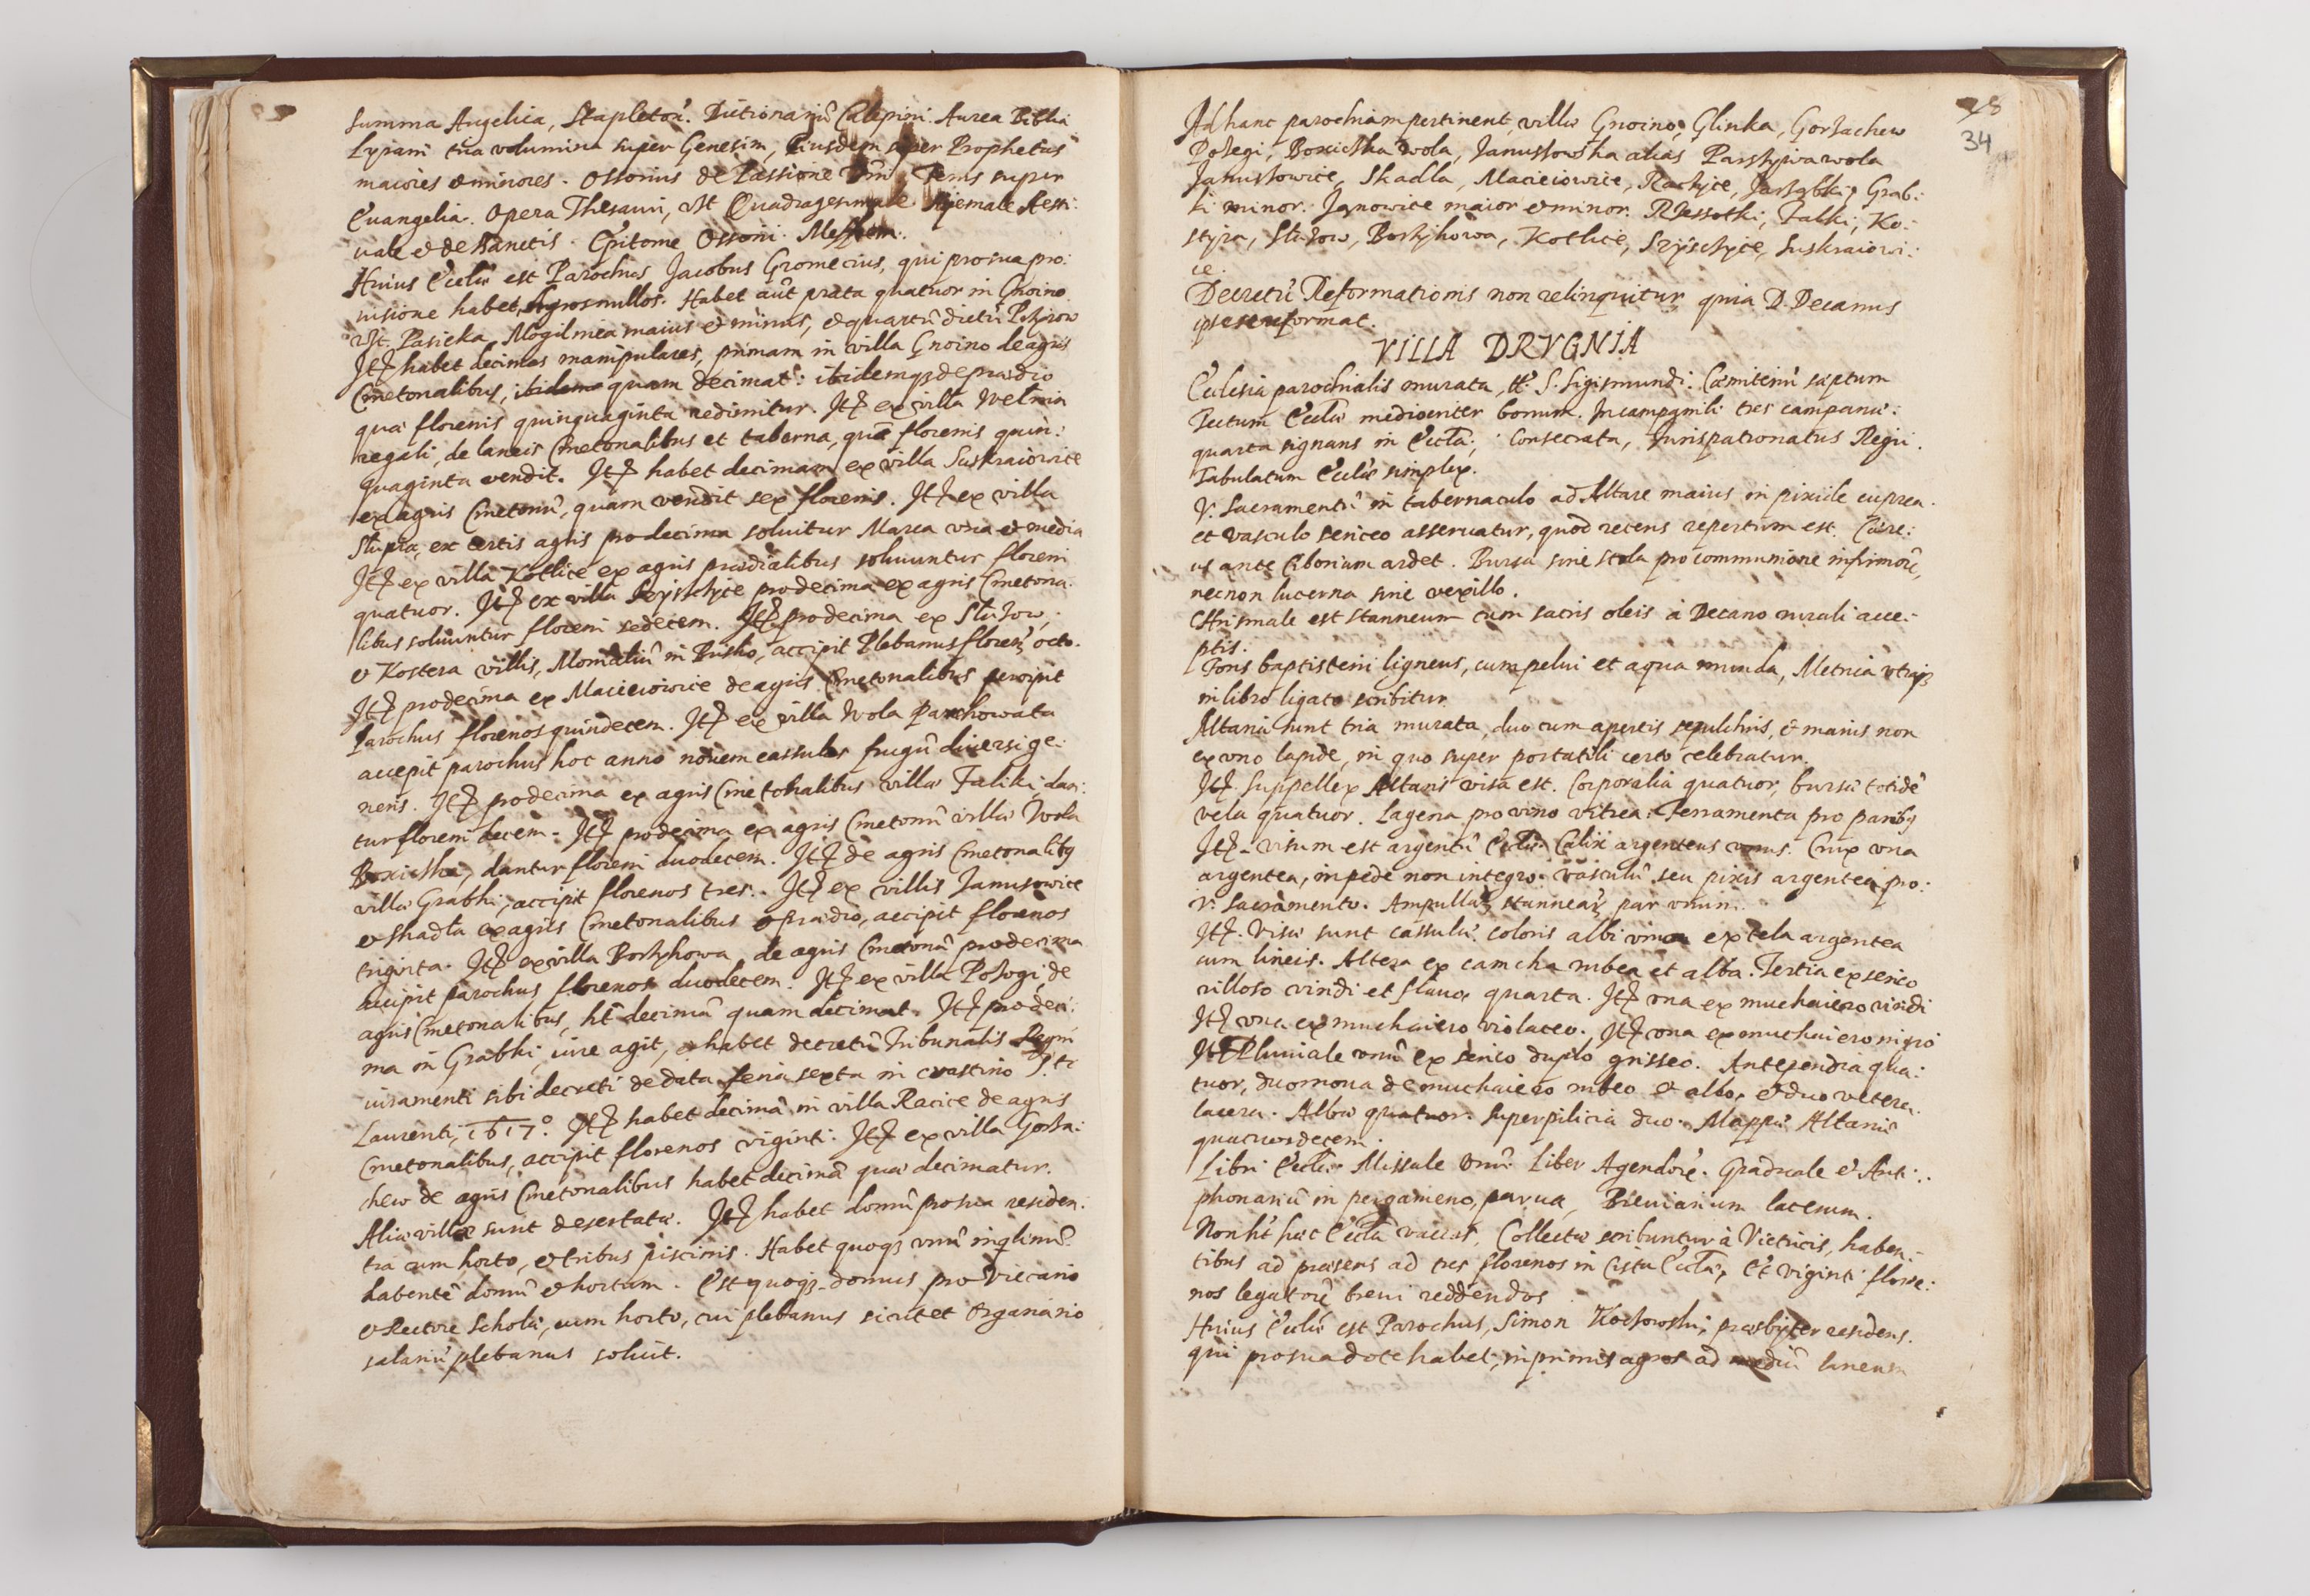 Summa Angelica, Stapleton. Dictionariū Calepini. Aurea Biblia
Lyrani tria volumina super Genesim, Eiusdem super Prophetas
maiores et minores. Ossorius de Passione Dni, Idem super
Euangelia. Opera Thesauri, Vt Quadragesimale Hiemale Aesti:
uale et de Sanctis. Epitome Ossorii.
Huius Ecclæ est Parochus Jacobus Gromecius, qui pro sua pro:
uisione habet, Agros nullos. Habet aūt prata quatuor in Gnoino
Vt, Pasieka, Mogilnica maius et minus, et quartū dictū
Itē habet decimas manipulares, primam in villa Gnoino de agris
Cmetonalibus, quam decimat: ibidemq̨ de prædio
quæ florenis quinquaginta redimitur. Itē ex villa Welnin
regali, de laneis Cmetonalibus et taberna, quā florenis quin:
quaginta vendit. Itē habet decimam ex villa Suskraiowice
ex agris Cmetonū, quam vendit sex florenis. Itē ex villa
Slupia, ex certis agris pro decima soluitur Marca vna et media
Itē ex villa Kotlice ex agris prædialibus soluuntur floreni
quatuor. Itē ex villa Szyszczyce pro decima ex agris Cmetona:
libus soluuntur floreni sedecem. Itē pro decima ex Służow,
et Kostera villis, Monialiū in Busko, accipit Plebanus floreñ octo.
Itē pro decima ex Macieiowice de agris Cmetonalibus percipit
Parochus florenos quindecem. Itē ex villa Wola Parchowata
accepit parochus hoc anno nouem cassulas frugū diuersi ge:
neris. Itē pro decima ex agris Cmetonalibus villæ Faliki, dan:
tur floreni decem. Itē pro decima ex agris Cmetonū villæ Wola
Boxicka, dantur floreni duodecem. Itē de agris Cmetonalibq
villæ Grabki, accipit florenos tres. Itē ex villis Janusowice
et Skadla ex agris Cmetonalibus et prædio, accipit florenos
triginta. Itē ex villa Borzykowa de agris Cmetonū pro decima
accipit parochus florenos duodecem. Itē ex villa Pozogi, de
agris Cmetonalibus, ht decimā quam decimat. Itē pro deci:
ma in Grabki, iure agit, et habet decretū Tribunalis Regni
iuramenti sibi decreti de data feria sexta in crastino S. ti
Laurentii, 1617.° Itē habet decimā in villa Racice de agris
Cmetonalibus, accipit florenos viginti. Itē ex villa Gorza:
chew de agris Cmetonalibus habet decimā quæ decimatur.
Aliæ villæ sunt desertatæ. Itē habet domū pro sua residen:
tia cum horto, et tribus piscinis. Habet quoq̨ vnū inqlinū
habentē domū et hortum. Est quoq̨ domus pro Vicario
et Rectore Scholæ, cum horto, cui plebanus sicut et Organario
salariū plebanus soluit.
28
34
Ad hanc parochiam pertinent, villæ Gnoino, Glinka, Gorzachew
Pozegi, Boxicka wola, Janussowska alias Parszywa wola
Janussowice, Skadla, Macieiowice, Raczyce, Jarząbki, Grab:
ki minor. Janowice maior et minor. Rzessotki, Falki, Ko:
styra, Służow, Borzykowa, Kotlice, Szyszczyce, Suskraiowi:
ce.
Decretū Reformationis non relinquitur, quia D. Decanus
ipse se reformat.
VILLA DRVGNIA
Ecclesia parochialis murata, tt. S. Sigismundi. Cœmiteriū sæptum
Tectum Ecclæ mediocriter bonum. In campanili tres campanæ.
quarta signans in Eccla; Consecrata, Iurispatronatus Regii.
Tabulatum Ecclæ simplex.
V. Sacramentū in tabernaculo ad Altare maius in pixide cuprea
et vasculo sericeo asseruatur, quod recens repertum est. Cære:
us ante Ciborium ardet. Bursa sine stola pro communione infirmorū,
necnon lucerna sine vexillo.
Chrismale est stanneum cum sacris oleis à Decano rurali acce:
ptis.
Fons baptisterii ligneus, cum pelui et aqua munda, Metrica vtraq̨
in libro ligato scribitur.
Altaria sunt tria murata, duo cum apertis sepulchris, et maius non
ex vno lapide, in quo super portatili certo celebratur.
Itē. Suppellex Altaris visa est. Corporalia quatuor, bursæ totidē
vela quatuor. Lagena pro vino vitrea. Ferramenta pro panibq
Itē. visum est argentū Ecclæ. Calix argenteus vnus. Crux vna
argentea, in pede non integro. vasculū seu pixis argentea pro:
V. Sacramento. Ampullaȝ stanneaȝ par vnum.
Itē. Visæ sunt cassulæ. coloris albi vna ex tela argentea
cum lineis. Altera ex camcha rubea et alba. Tertia ex serico
villoso viridi et flauo, quarta. Itē vna ex muchaiero viridi
Itē vna ex muchaiero violaceo. Itē vna ex muchaiero nigro
Itē Pluuiale vnū ex serico duplo grisseo. Antependia qua:
tuor, duo noua de muchaiero rubeo et albo, et duo vetera
lacera. Albæ quatuor. Superpilicia duo. Mappæ Altariū
quatuordecem.
Libri Ecclæ. Missale vnū. Liber Agendorū. Graduale et Anti:
phonariū in pergameno, parua, Breuiarium lacerum.
Non ht hæc Eccla vaccas, Collectæ scribuntur à Vitricis, haben:
tibus ad præsens ad tres florenos in Cista Ecclæ, Et viginti flore:
nos legatorū breui reddendos.
Huius Ecclæ est Parochus, Simon Koczowski, præsbyter residens.
qui pro sua dote habet, inprimis agros ad mediū laneum